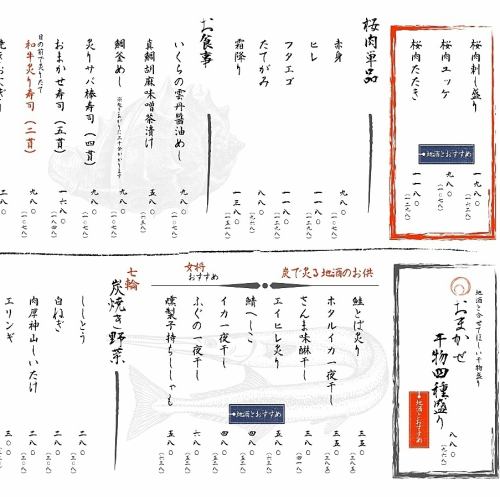 桜肉刺し盛り 一九八〇
桜肉ユッケ 九八〇
桜肉たたき 一一八〇
地酒とおすすめ
桜肉単品
赤身 九八〇
ヒレ 一一八〇
フタエゴ 一一八〇
たてがみ 八八〇
霜降り 一三八〇
お食事
いくらの雲丹醤油めし 九八〇
真鯛胡麻味噌茶漬け 五八〇
鯛釜めし 九八〇
炙りサバ棒寿司(四貫) 九八〇
おまかせ寿司(五貫) 一六八〇
目の前で炙りたて
和牛炙り寿司(二貫) 九八〇
地酒と合せてほしい干物盛り
おまかせ
干物四種盛り
八八〇
地酒とおすすめ
炭で炙る地酒のお供
女将
おすすめ
鮭とば炙り 三五〇
ホタルイカ一夜干し 三五〇
さんま味醂干し 三八〇
エイヒレ炙り 五八〇
鯖へしこ 四八〇
イカ一夜干し 四八〇
ふぐの一夜干し 六八〇
燻製子持ちししゃも 五八〇
地酒とおすすめ
七輪
炭焼き野菜
ししとう 二八〇
白ねぎ 二八〇
肉厚神山しいたけ 二八〇
エリンギ 三〇〇